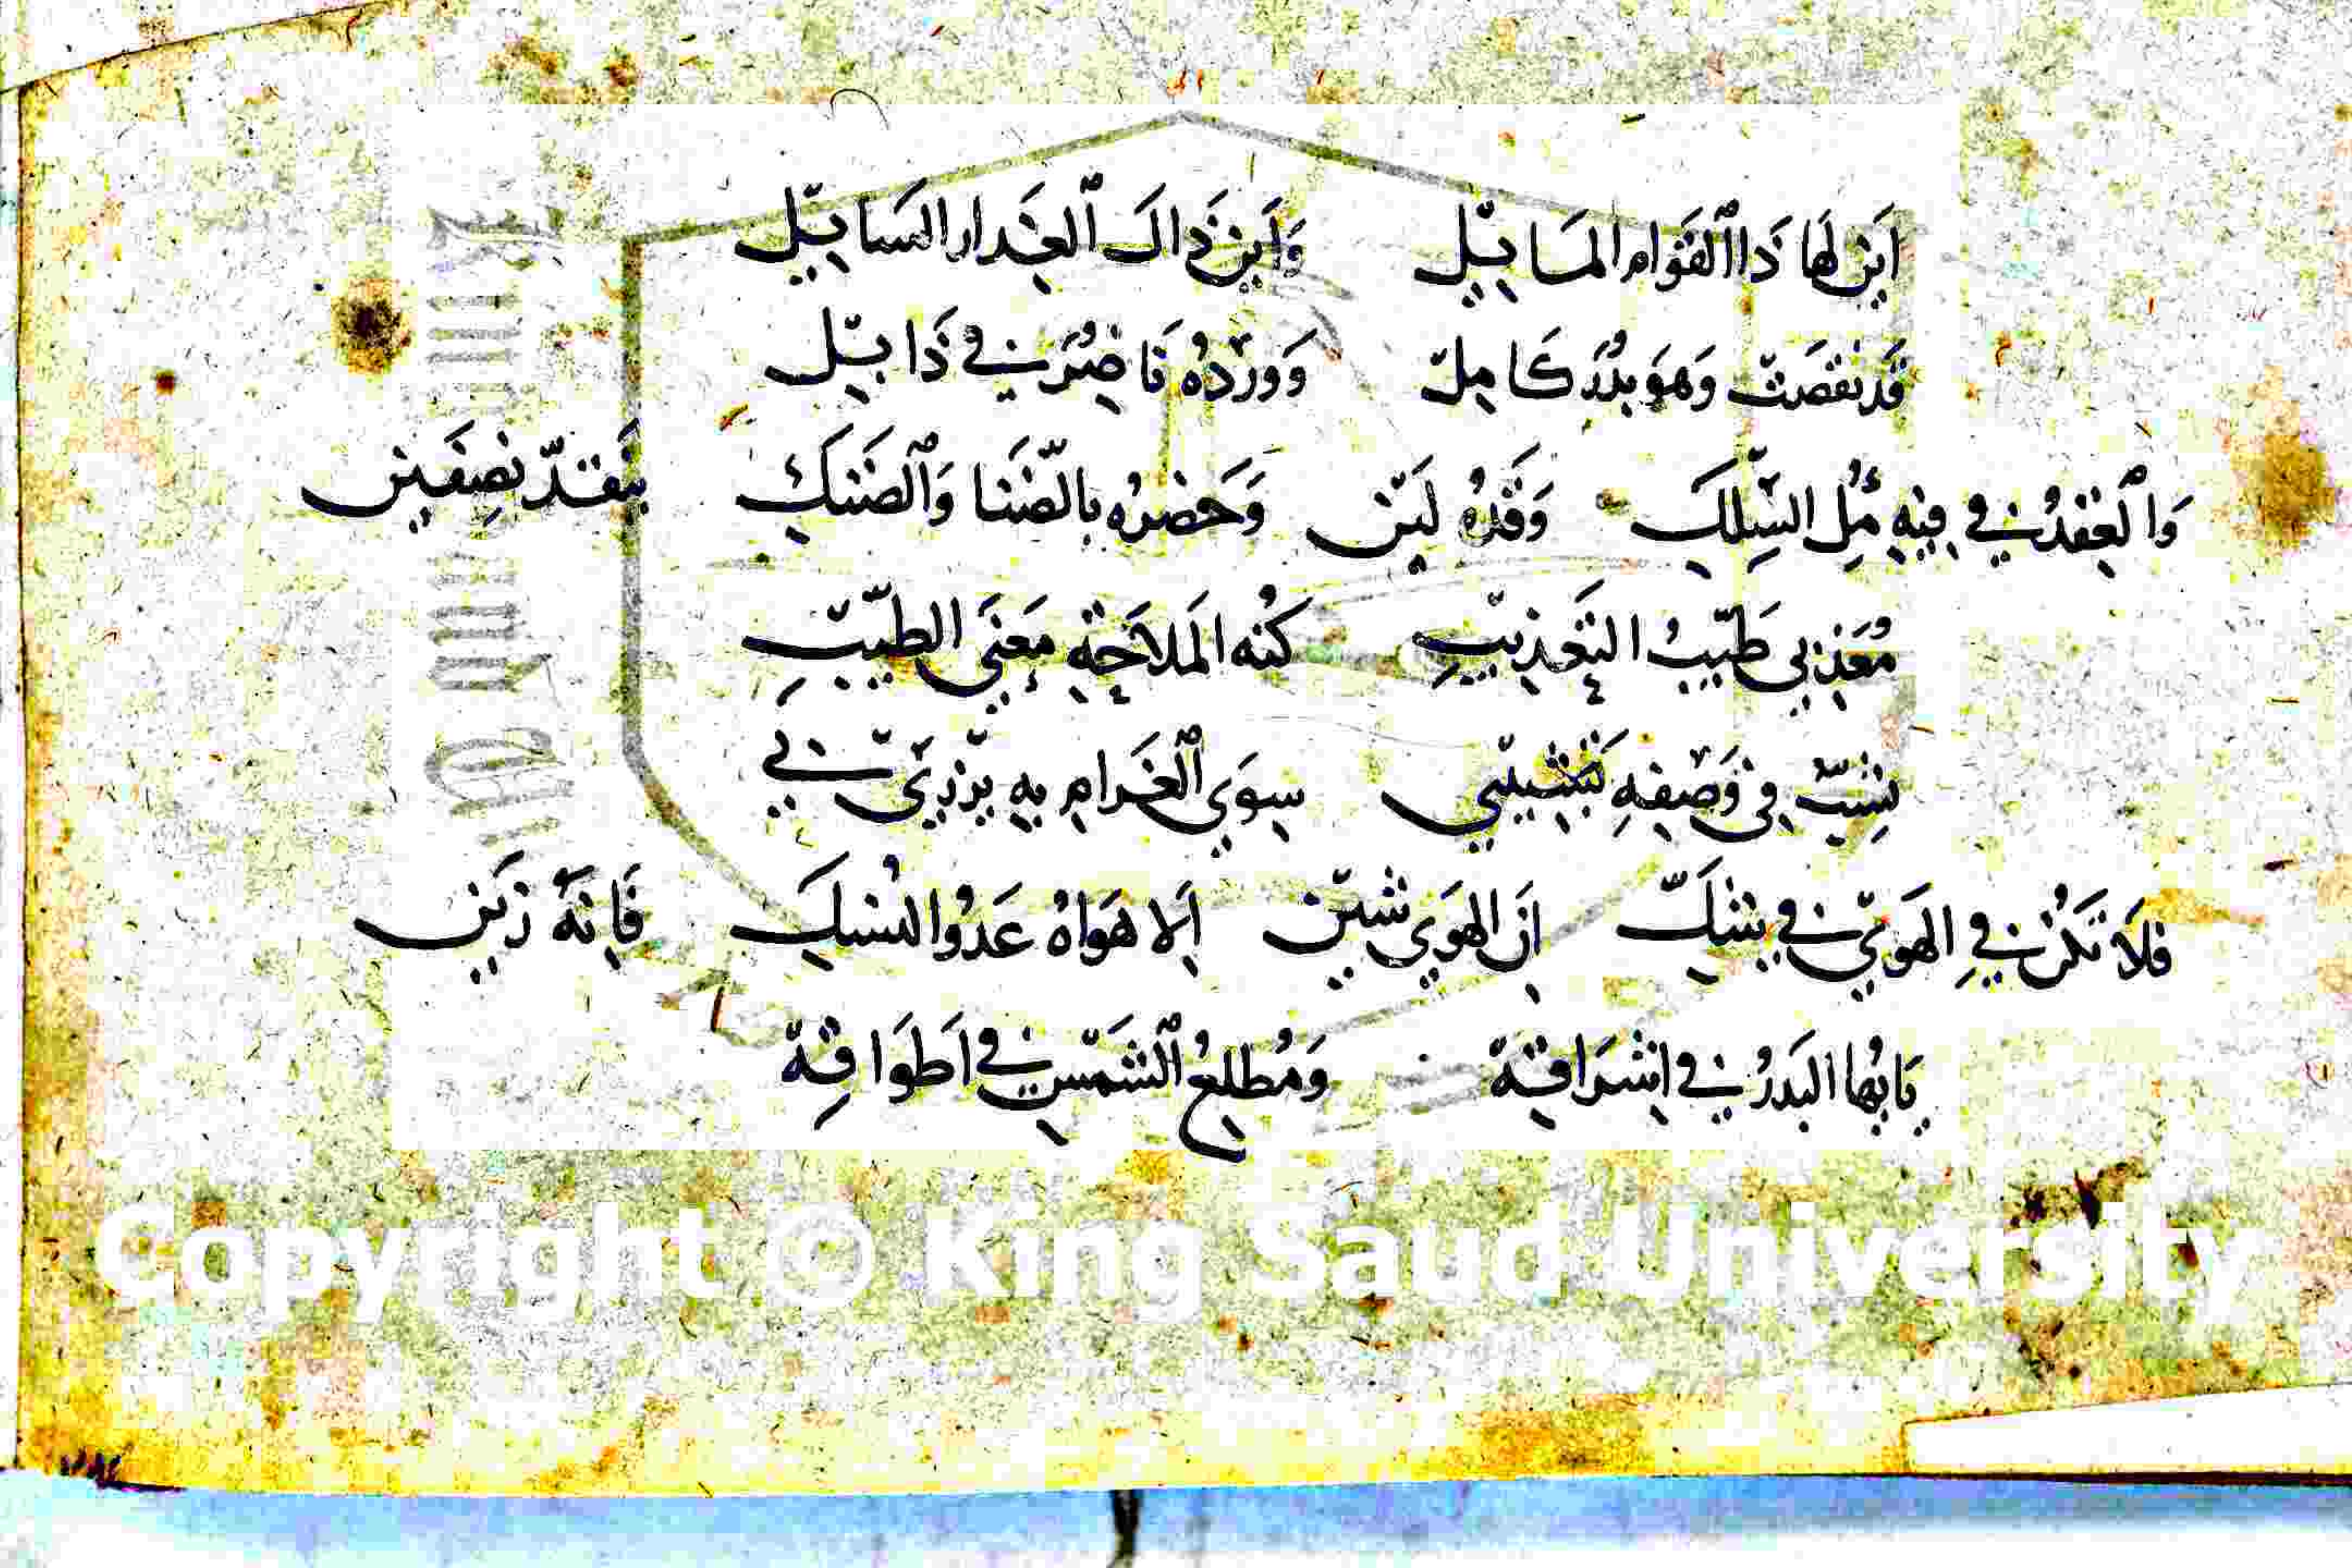 اَيْنَ لَهَا ذَا اٱلقَوَام المَايِلْ وَاَيْنَ ذَاكَ ٱلعِذَار السَايِلْ
قَد نقصَتْ وَهوَ بَدُرَ كَامِلْ وَورْدُه نَاضِرُ فِي ذَابِلْ
وَٱلعِقدُ فِي فِيهِ مُل السِّلكِ وَقَدُهُ لَيّن وَخَصْرُه بِالضَّنَا وَٱلضَنكِ يَنقَدّ نِصفَين
مُعَذِبي طَيّبُ التَعْذِيبِ كُنه المَلاَحَةِ مَعنَى الطِيّبِ
فِى وَصْفِهِ سِوَي ٱلغَرامِ بِه يزْرِيْ فِي
فلَا تَكُن فِي الهَوَيْ فِي شَكّ اِنَ الهَوَي شَيْن اِلا هَوَاهُ عَدُوا النُسكَ فَاِنَهُ زَيْن
يَايُهَا البَدرُ فِي اِشرَاقِهْ وَمُطلِعُ ٱلشَمْسِ فِي اَطوَاقِهْ
Copyright © King Saud University